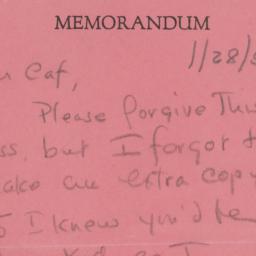 MEMORANDUM
1/28/5
Caf,
Please forgive This
but I forgot t
ake an extra copy
I knew you'd be